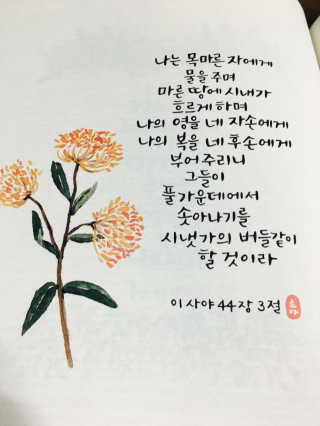 나는 목마른 자에게
물을 주며
마른 땅에 시내가
흐르게 하며
나의 영을 네 자손에게
나의 복을 네 후손에게
부어 주리니
그들이
풀 가운데에서
솟아나기를
시냇가의 버들같이
할 것이라
이사야 44장 3절